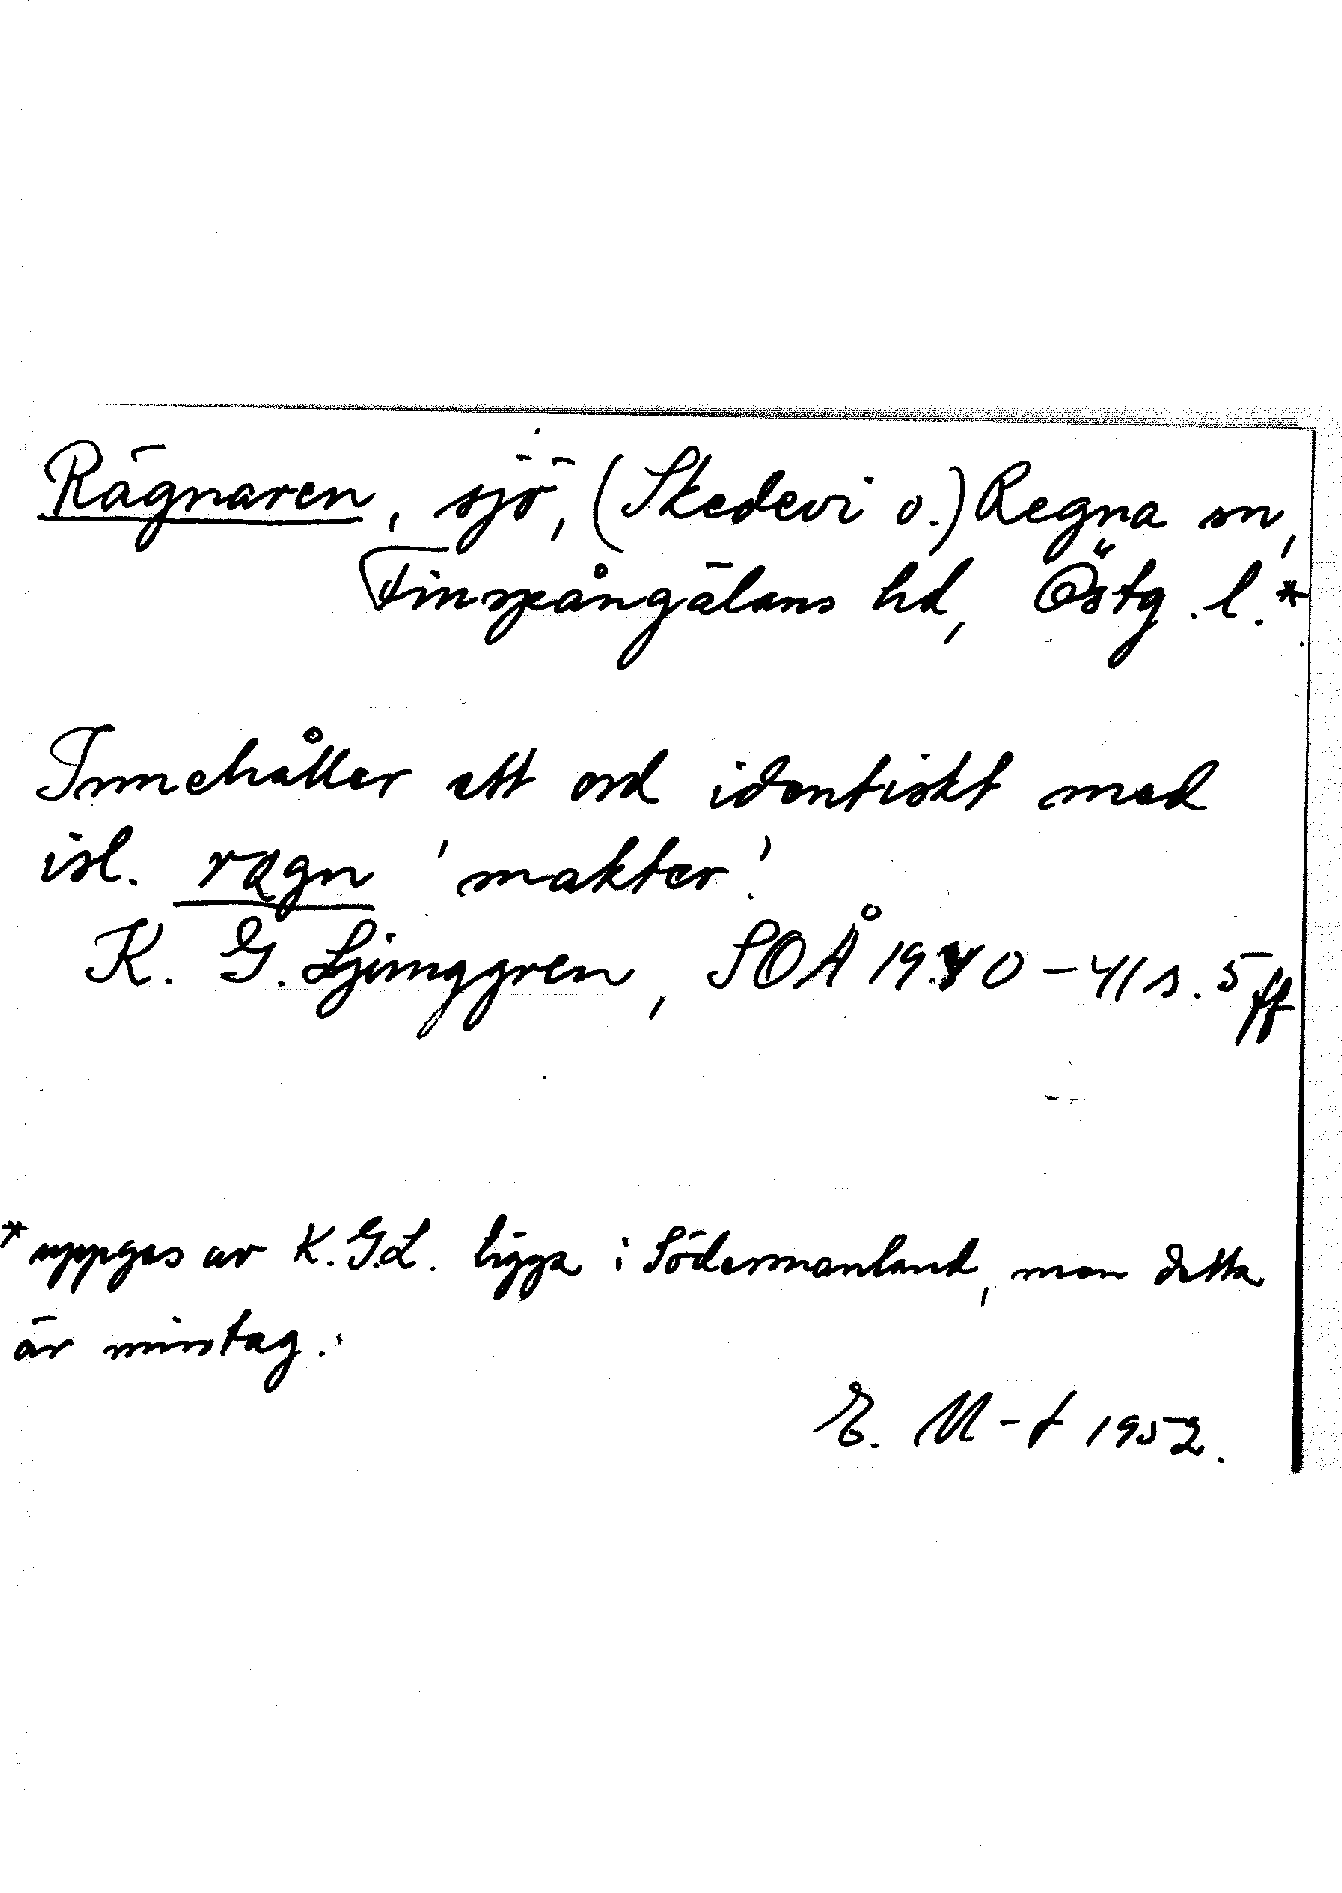 Rägnaren, sjö, (Skedevi o.) Regna sn,
Finspångaläns hd, Östg. l.*
Innehåller ett ord identiskt med
isl. rǫgn 'makter'.
K. G. Ljunggren, SOÅ 1940-41 s. 5 ff
* uppges av K.G.L. ligga i Södermanland, men detta
är misstag.
E. M-t 1952.